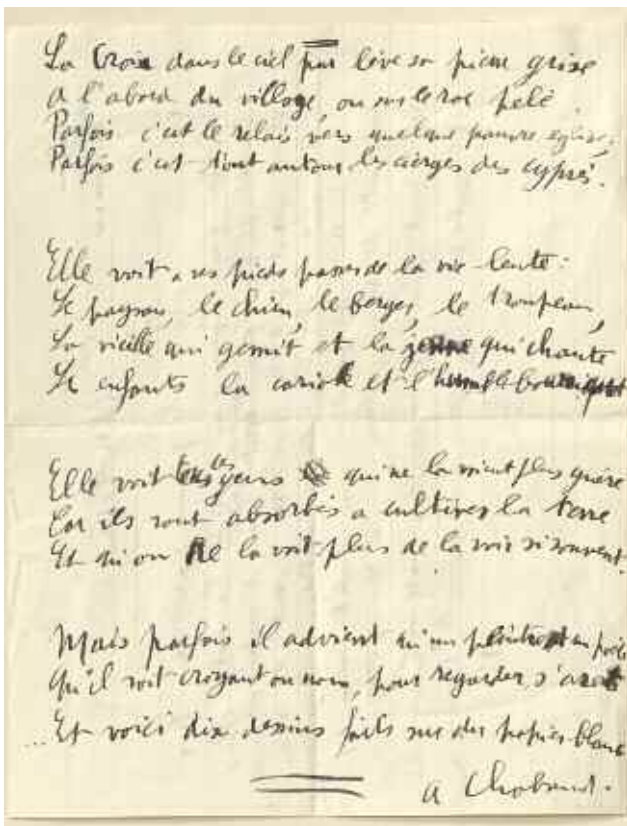 La Croix dans le ciel pur lève sa pierre grise
A l'abord du village, ou sur le roc pelé.
Parfois c'est le relais vers quelque pauvre église,
Parfois c'est tout autour les cierges des cyprès.
Elle voit a ses pieds passer de la vie lente :
Le paysan, le chien, le berger, le troupeau,
La vieille qui gemit et la jeune qui chante
Le enfants la cariole et l'humble bourriquot
Elle voit tous les gens qui ne la voient plus guère
Car ils sont absorbés a cultiver la terre
Et qu'on Ne la voit plus de la voir si souvent.
Mais parfois il advient qu'un peintre un poète
Qu'il soit croyant ou non, pour regarder, s'arrete
...Et voici dix dessins faits sur du papier blanc
A Chabaud.